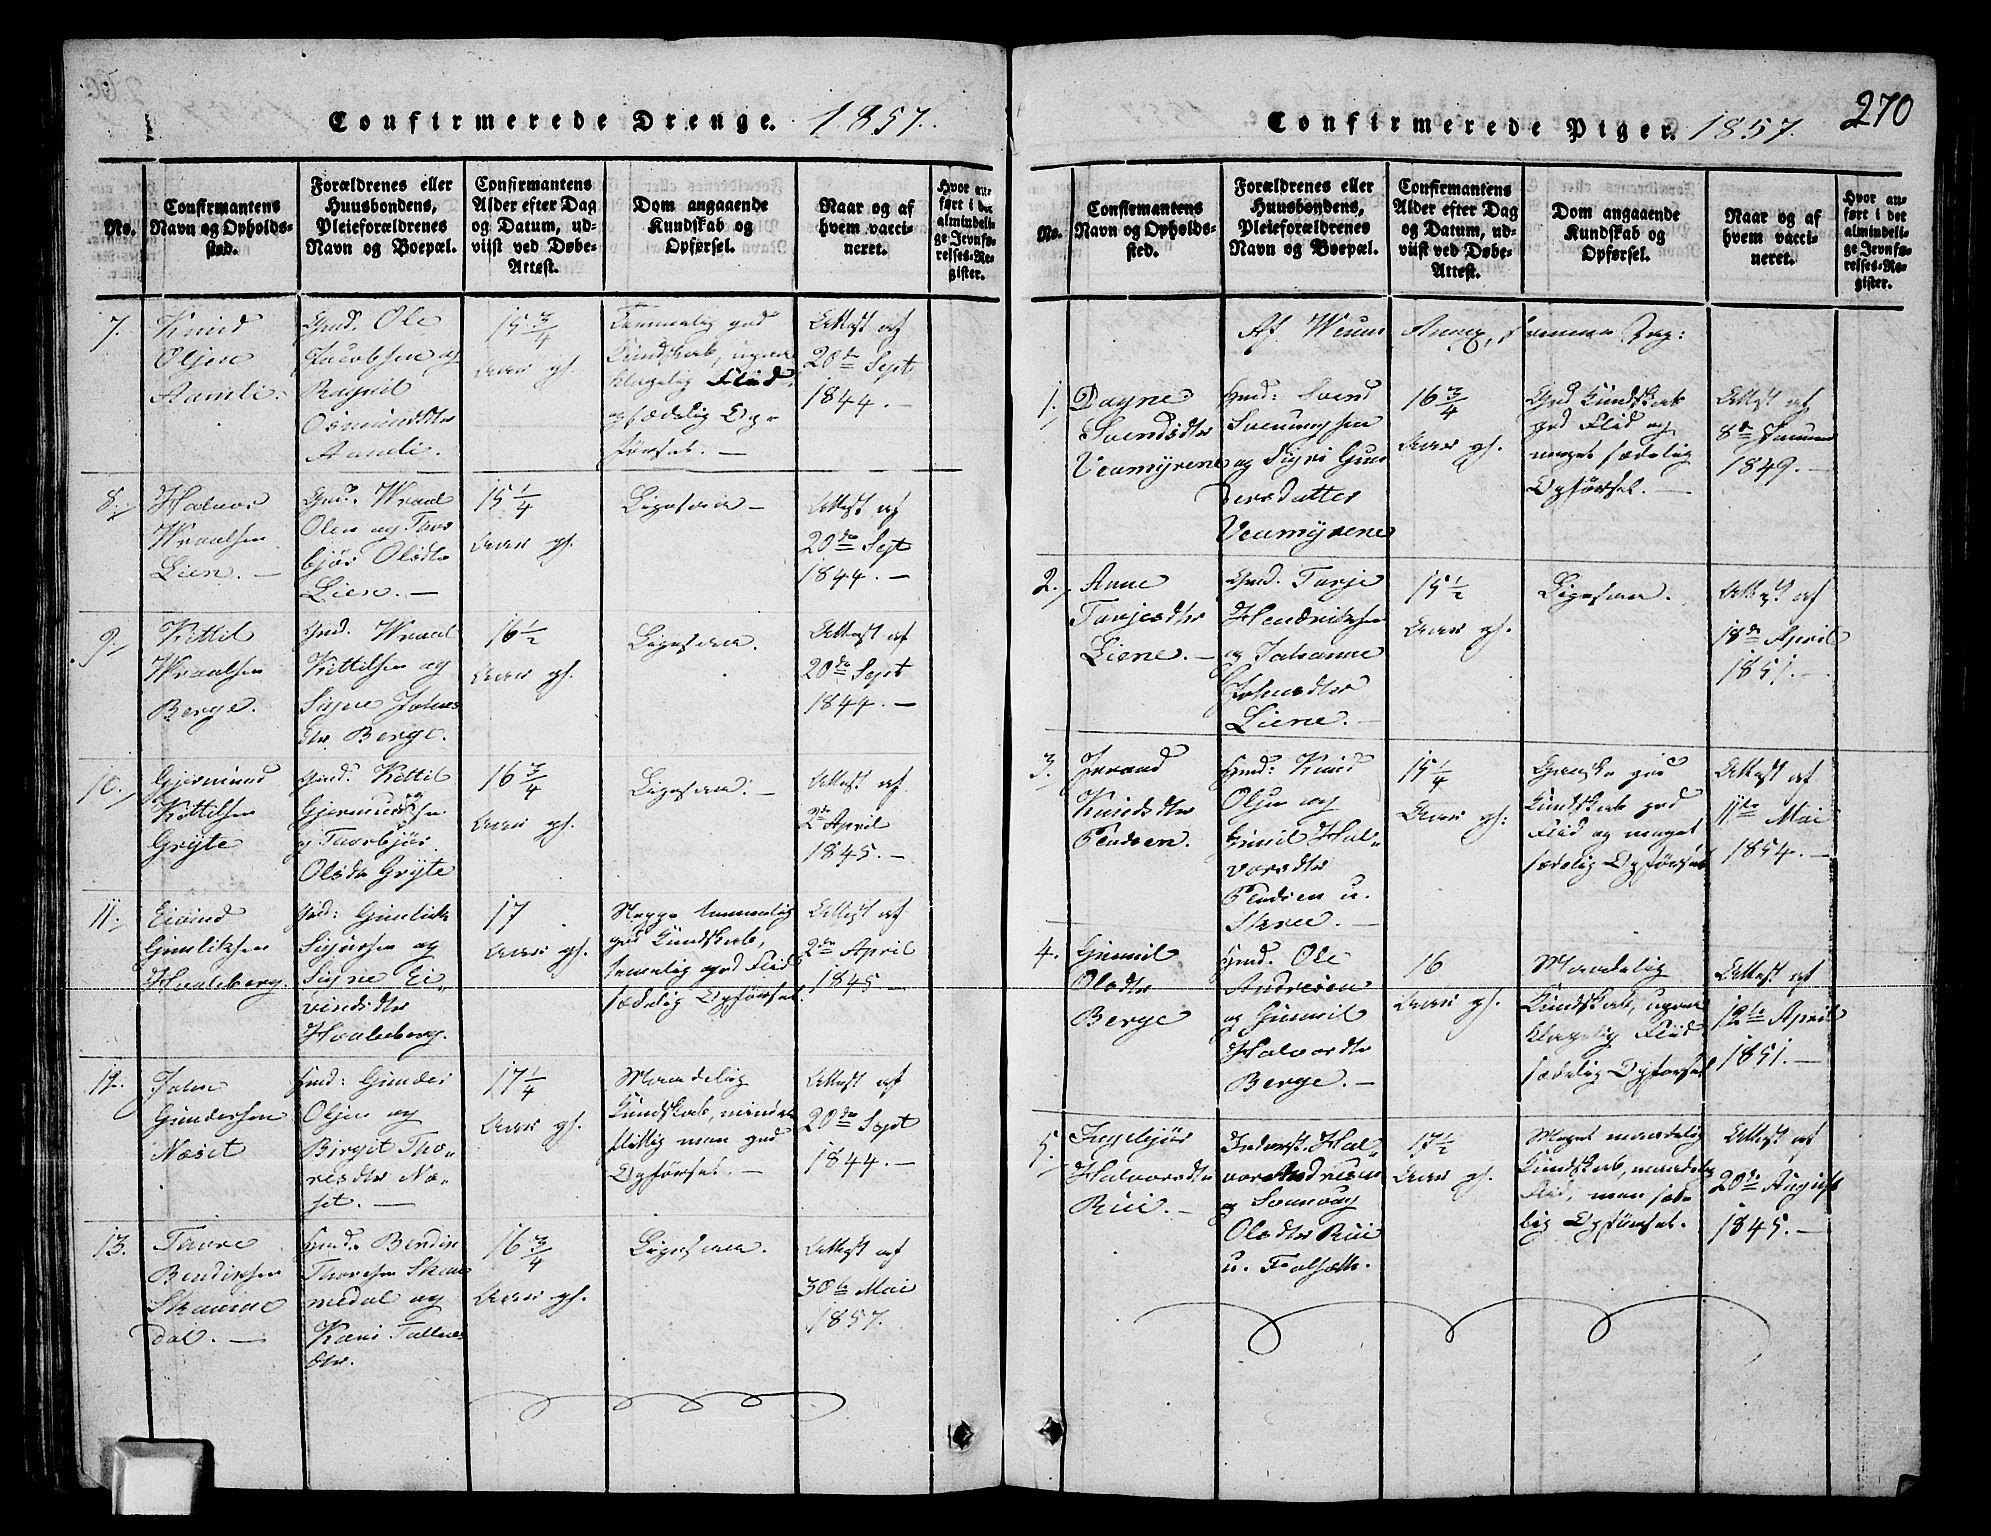 Confirmerede Drenge. 1857.
No.
Confirmantens
Navn og Opholds-
sted.
Forældrenes eller
Huusbondens,
Pleieforældrenes
Navn og Boepæl.
Confirmantens
Alder efter Dag
og Datum, ud-
viist ved Døbe-
Attest.
Dom angaaende
Kundskab og
Opførsel.
Naar og af
hvem vacci-
neret.
Hvor an-
ført i det
almindeli-
ge Jevnfø-
relses-Re-
gister.
7.
Knud
Olsen
Aamli.
Gmd. Ole
Jacobsen og
Ragnil
Osmundsdtr
Aamli.
15 3/4
Aar gl.
Temmelig god
Kundskab, upaa
klagelig Flid
og sædelig Op-
førsel. —
Attest af
20de Sept
1844. —
8.
Halvor
Wraalsen
Lien. —
Gmd. Wraal
Olsen og Thor
bjør Olsdtr
Lien. —
15 1/4
Aar gl.
Ligesaa —
Attest af
20de Sept
1844. —
9.
Kittil
Wraalsen
Berge.
Gmd. Wraal
Kittilsen og
Signe Johnes
dtr. Berge.
16 1/2
Aar gl.
Ligesaa.
Attest af
20de Sept
1844. —
10.
Gjermund
Kittilsen
Gryte
Gmd. Kittil
Gjermundsen
og Thorbjør
Olsdtr Gryte
16 3/4
Aar gl.
Ligesaa. —
Attest af
2de April
1845. —
11.
Eivind
Gunliksen
Haaleberg.
Gmd: Gunlik
Sigursen og
Signe Ei-
vindsdtr
Haaleberg.
17
Aar gl.
Neppe temmelig
god Kundskab,
temelig god Flid
sædelig Opførsel.
Attest af
2den April
1845 —
12.
John
Gundersen
Næset
Gmd: Gunder
Olsen og
Birgit Tho-
resdtr Næ-
set. —
17 1/4
Aar gl.
Maadelig
Kundskab, mindre
flittig men god
Opførsel. —
Attest af
20de Sept
1844. —
13.
Thore
Bendiksen
Skaume
dal. —
Gmd. Bendik
Thoresen Skau
medal og
Kari Tallnes
dtr.
16 3/4
Aar gl.
Ligesaa.
Attest af
30te Mai
1857.
Confirmerede Piger. 1857. 270
No.
Confirmantens
Navn og Opholds-
sted.
Forældrenes eller
Huusbondens,
Pleieforældrenes
Navn og Boepæl.
Confirmantens
Alder efter Dag
og Datum, ud-
viist ved Døbe-
Attest.
Dom angaaende
Kundskab og
Opførsel.
Naar og af
hvem vacci-
neret.
Hvor an-
ført i det
almindeli-
ge Jevnfø-
relses-Re-
gister.
Af Weum Annex, samme Dag:
1.
Dagne
Svendsdtr
Veumyrene
Gmd: Svend
Svenungsen
og Sigri Gun
dersdatter
Veumyrene
16 3/4
Aar gl.
God Kundskab
god Flid og
meget sædelig
Opførsel. —
Attest af
8de Januar
1849. —
2.
Anne
Tarjesdtr
Liene. —
Gmd. Tarje
Hendriksen
og Johanne
Johnsdtr
Liene. —
15 1/2
Aar gl.
Ligesaa.
Attest af
18de April
1851. —
3.
Jorand
Knudsdtr
Gmd: Knud
Olsen og
Gunil Hal-
vorsdtr
u.
Skree. —
15 1/4
Aar gl.
Ganske god
Kundskab god
Flid og meget
sædelig Opførsel
Attest af
11te Mai
1854. —
4.
Gunnil
Olsdtr
Berge
Gmd. Ole
Andresen
og Gunnil
Halvorsdtr
Berge. —
16
Aar gl.
Maadelig
Kundskab, upaa
klagelig Flid
sædelig Opførsel
Attest af
12te April
1851. —
5.
Ingebjør
Halvorsdtr
Rui. —
Inderst Hal
vor Andresen
og Sønnaug
Olsdtr Rui
u. Folsæth.
17 1/2
Aar gl.
Meget maadelig
Kundskab, maadelig
Flid, men sæde
lig Opførsel.
Attest af
20de August
1845. —